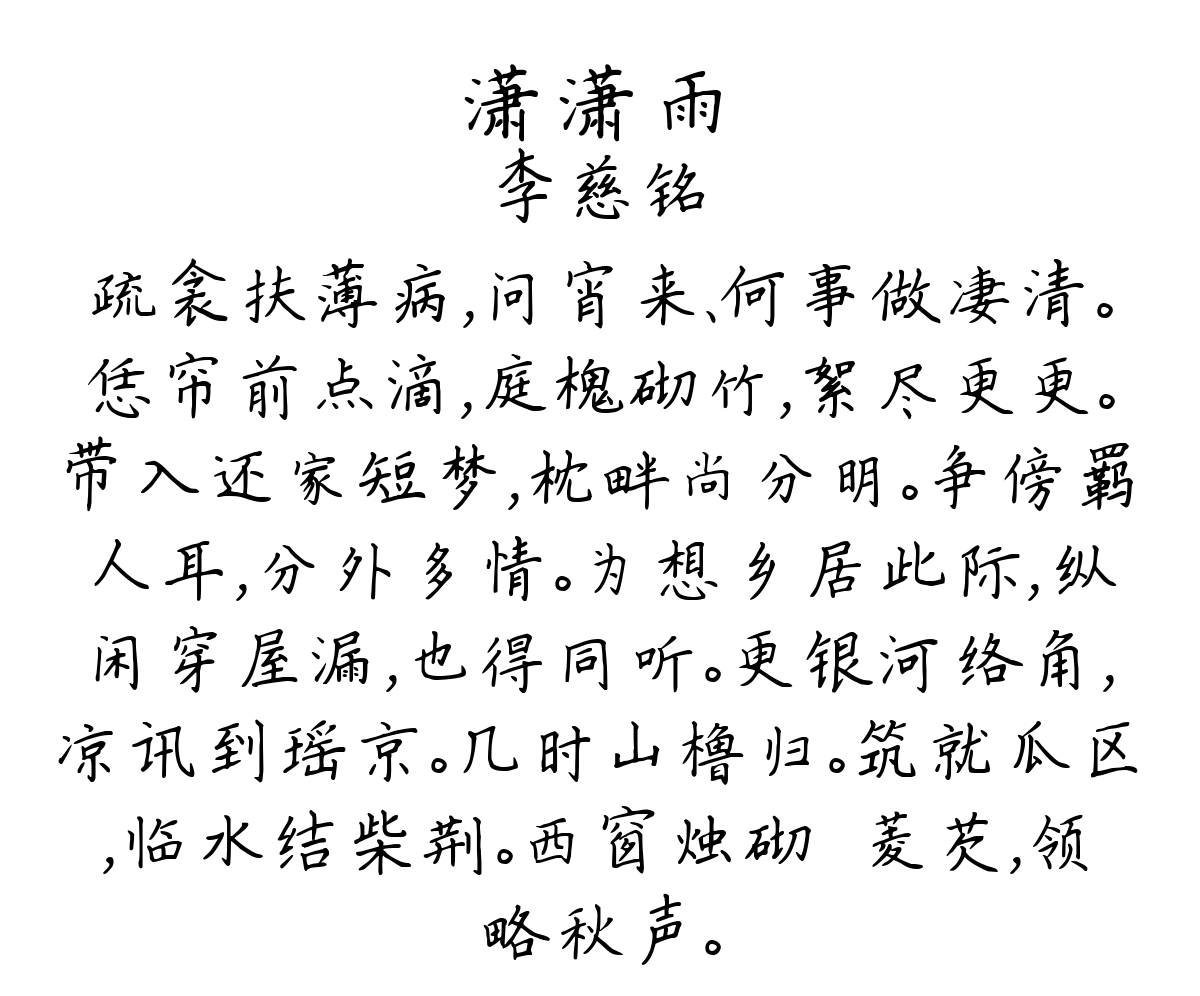 潇潇雨
李慈铭
疏衾扶薄病,问宵来、何事做凄清。
恁帘前点滴,庭槐砌竹,絮尽更更。
带入还家短梦,枕畔尚分明。争傍羁
人耳,分外多情。为想乡居此际,纵
闲穿屋漏,也得同听。更银河络角,
凉讯到瑶京。几时山橹归。筑就瓜区
,临水结柴荆。西窗烛砌 菱芡,领
略秋声。